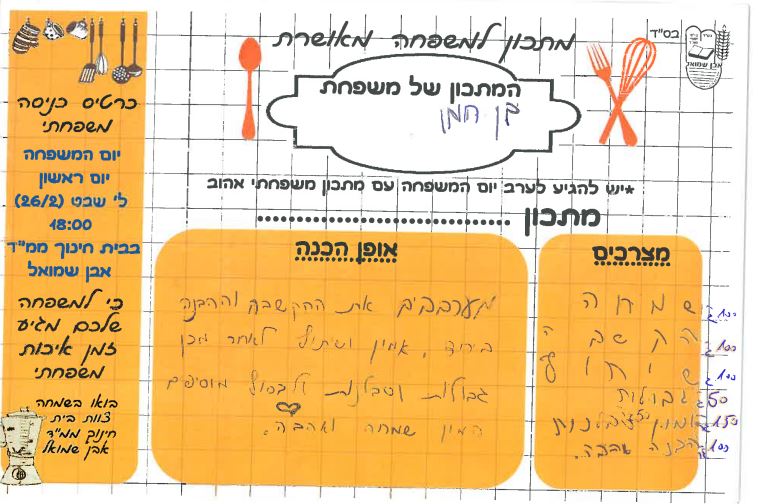 בס"ד
אבן שמואל
מתכון למשפחה מאושרת
המתכון של משפחת
בן חמו
*יש להגיע לערב יום המשפחה עם מתכון משפחתי אהוב
מתכון
מצרכים
שמחה 100 ג'
הקשבה 100 ג'
שיתוף 100 ג'
גבולות 50 ג'
אמון סבלנות 150 ג'
הבנה אהבה. 100 ג'
אופן הכנה
מערבבים את ההקשבה וההבנה
ביחד, אמון ושיתוף לאחר מכן
גבולות וסבלנות ולבסוף מוסיפים
המון שמחה ואהבה.
כרטיס כניסה
משפחתי
יום המשפחה
יום ראשון
ל' שבט (26/2)
18:00
בבית חינוך ממ"ד
אבן שמואל
כי למשפחה
שלכם מגיע
זמן איכות
משפחתי
בואו בשמחה
צוות בית
חינוך ממ"ד
אבן שמואל